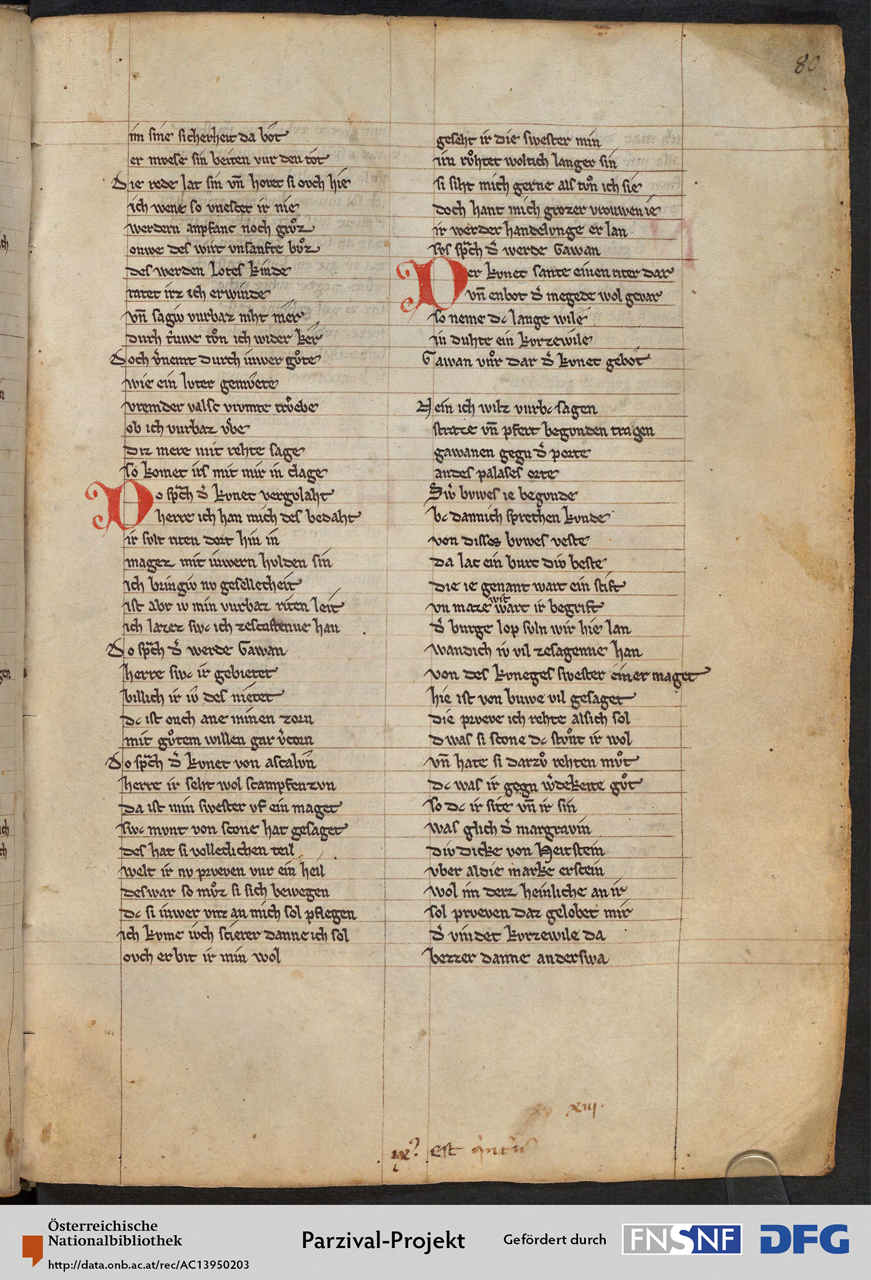 80
im sine sicherheit da bot
er mvese sin beiten vur den tot
Die rede lat sin vn̄ horet si ovch hie
ich wene so vnestet ir nie
werdern anpfanc noch grůz
ouwe des wirt vnsanfte bůz
des werden Lotes kinde
ratet irz ich erwinde
vn̄ sagiv vurbaz niht mer
durh truwe tůn ich wider ker
Doch v̄nemt durch iuwer gůte
wie ein luter gemůete
vremder valsc vrumte trůebe
ob ich vurbaz v̊be
diz mere mit rehte sage
so komet irs mit mir in clage
Do sp̄ch d̄ kvnec vergulaht
herre ich han mich des bedaht
ir sult riten dort hin in
magez mit iuwern hulden sin
ich bringiv nv gesellecheit
ist abr iv min vurbaz riten leit
ich lazez swc ich zescustenne han
Do sp̄ch d̄ werde Gawan
herre swc ir gebietet
billich ir iv̄ des nietet
dc ist ouch ane minen zorn
mit gůtem willen gar v̄corn
Do sp̄ch d̄ kvnec von ascalvn̄
herre ir seht wol scampfenzvn
da ist min swester vf ein maget
swc mvnt von scone hat gesaget
des hat si volleclichen teil
welt ir nv prveven vur ein heil
deswar so můz si sich bewegen
dc si iuwer vnz an mich sol pflegen
ich kvme ivch scierer danne ich sol
ovch erbit ir min wol
geseht ir die swester min
irn růhtet woltich langer sin
si siht mich gerne als tůn ich sie
doch hant mich grozer vrouwen ie
ir werder handelvnge er lan
svs sp̄ch d̄ werde Gawan
Der kvnec sante einen riter dar
vn̄ enbot d̄ megede wol gevar
so neme dc lange wile
in duhte ein kvrzewile
Gawan vůr dar d̄ kvnec gebot
Nein ich wilz vurbc sagen
straze vn̄ pfert begonden tragen
gawanen gegn d̄ porte
andes palases orte
Sw̄ bvwes ie begvnde
bc dannich sprechen kvnde
von disses bvwes veste
da lac ein burc div beste
die ie genant wart ein stift
vn maze wit wart ir begrift
d̄ burge lop svln wir hie lan
wandich iv̄ vil zesagenne han
von des kvneges swester einer maget
hie ist von buwe vil gesaget
die prveve ich rehte alsich sol
d was si scone dc stůnt ir wol
vn̄ hate si darzů rehten můt
dc was ir gegn w̄dekeite gůt
so dc ir site vn̄ ir sin
was glich d̄ margravin
div dicke von Heitstein
vber aldie marke erstein
wol im derz heinliche an ir
sol prveven daz gelobet mir
d̄ vindet kvrzewile da
bezzer danne anderswa
xiij.
est
Österreichische
Nationalbibliothek
http://data.onb.ac.at/rec/AC13950203
Parzival-Projekt
Gefördert durch
FNSNF
DFG